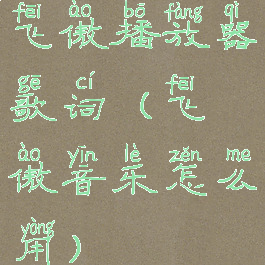 fēi ào bō fàng qì
飞傲播放器
gē cí fēi
歌词(飞
ào yīn lè zěn me
傲音乐怎么
yàng
用)